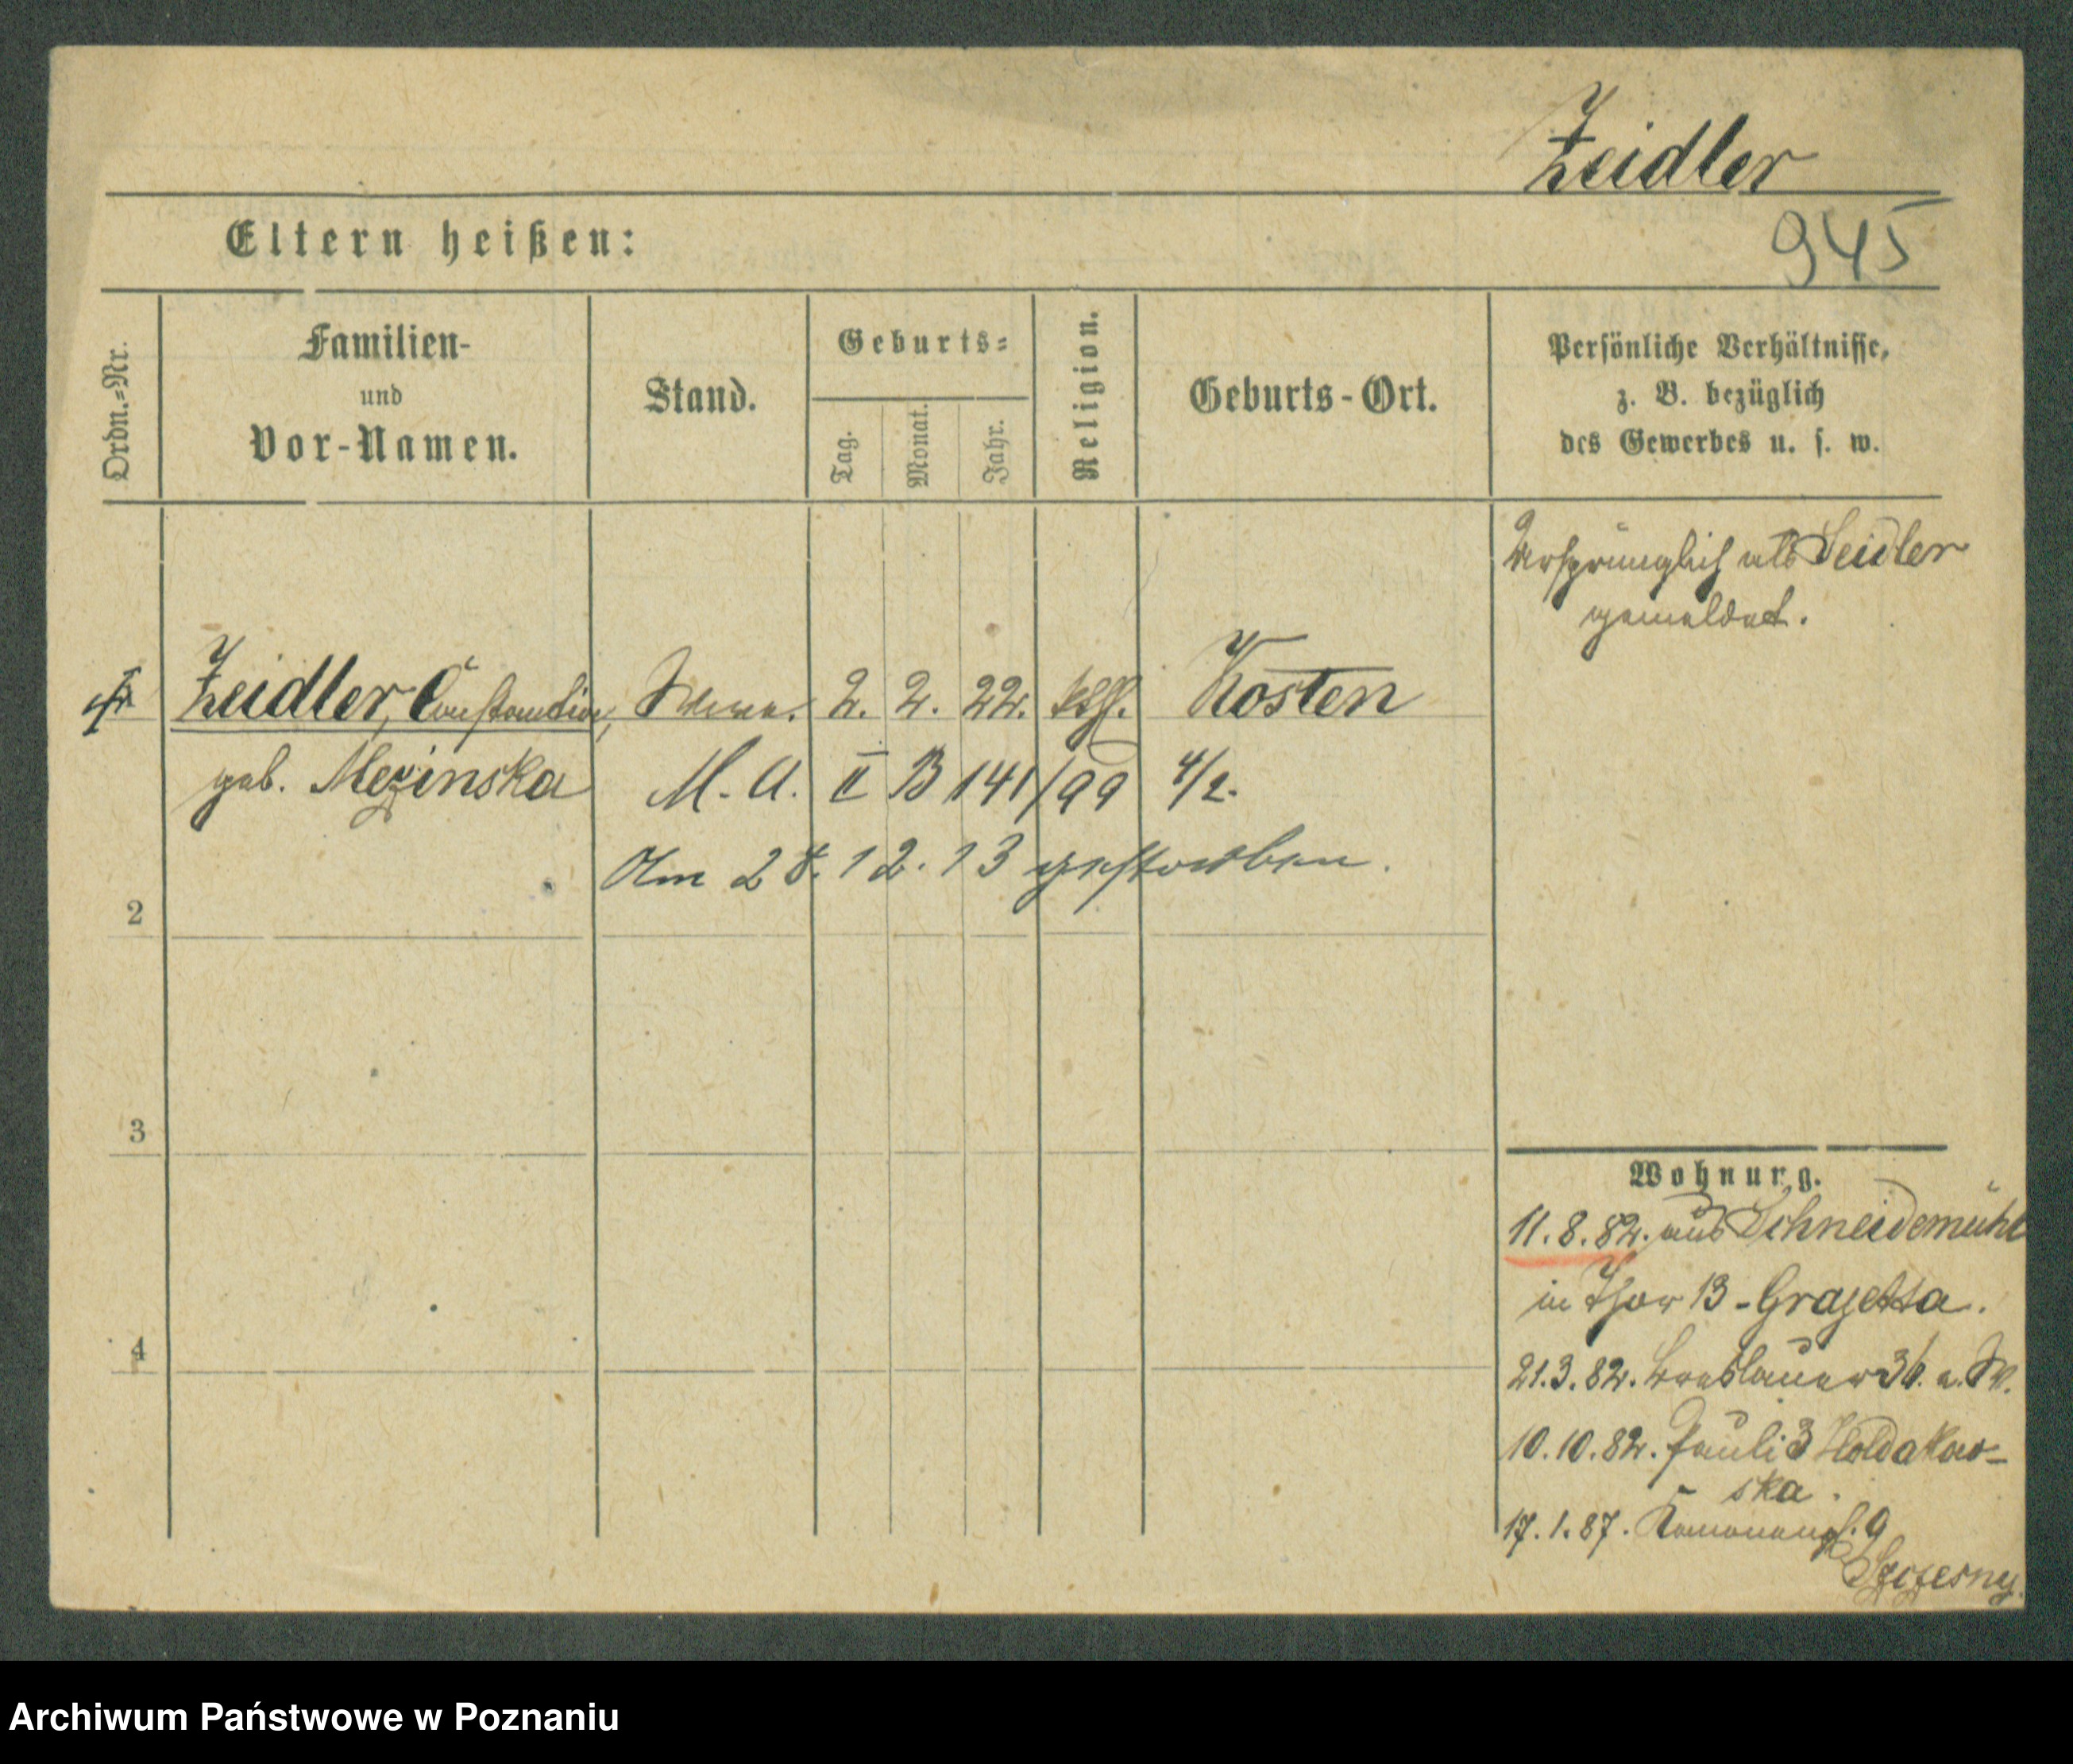 Zeidler
Eltern heißen:
945
Ordn.=Nr.
Familien-
und
Vor-Namen.
Stand.
Geburts=
Tag.
Monat.
Jahr.
Religion.
Geburts-Ort.
Persönliche Verhältnisse,
z. B. bezüglich
des Gewerbes u. s. w.
Ursprünglich als Seidler
gemeldet.
Zeidler, Constantine, 2. 2. 22. kth. Kosten
geb. Mezinska M. A. II B 141/99 4/2.
Am 28.12.13 gestorben.
2
3
4
Wohnung.
11.8.82. aus Schneidemühl
in Thor 13 -
21.3.82. Breslauer
10.10.82. Pauli 3 Holdakow-
ska.
17.1.87. 9
Szczesny.
Archiwum Państwowe w Poznaniu